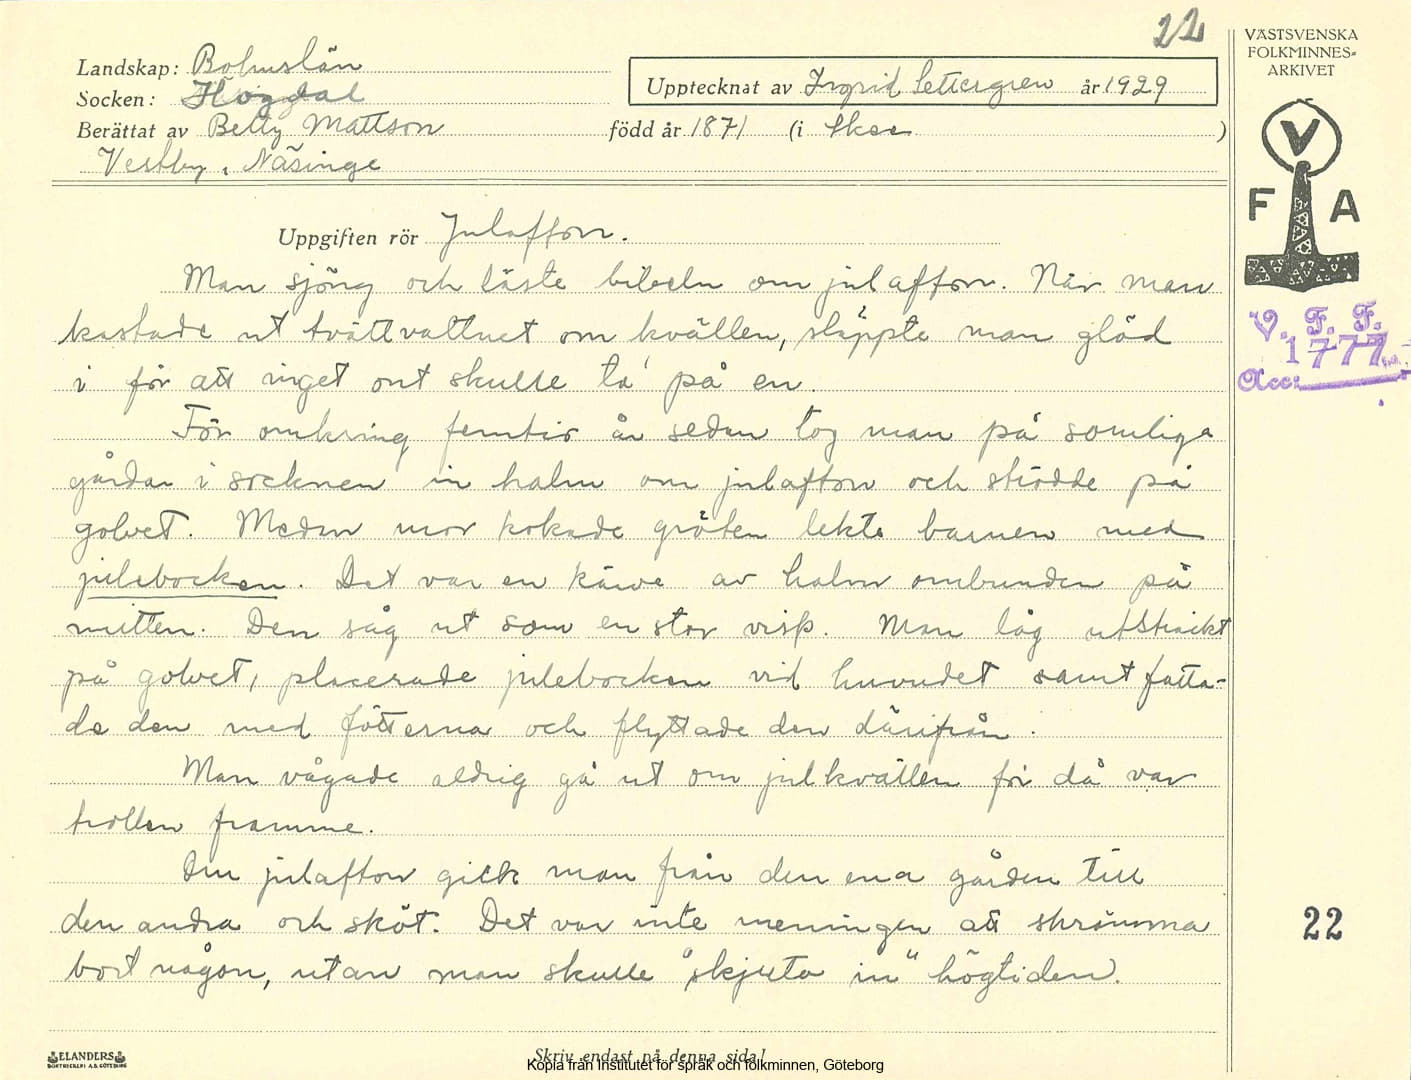 22
VÄSTSVENSKA
FOLKMINNES-
ARKIVET
Landskap: Bohuslän
Upptecknat av Ingrid Settergren år 1929
Socken: Hogdal
Berättat av Betty Mattson född år 1871 (i Skee)
Vestby, Näsinge
V
F A
Uppgiften rör Julafton.
Man sjöng och läste bibeln om julafton. När man
kastade ut tvättvattnet om kvällen, släppte man glöd
i för att inget ont skulle ta' på en.
För omkring femtio år sedan tog man på somliga
gårdar i socknen in halm om julafton och strödde på
golvet. Medan mor kokade gröten lekte barnen med
julebocken. Det var en kärve av halm ombunden på
mitten. Den såg ut som en stor visp. Man låg utsträckt
på golvet, placerade julebocken vid huvudet samt fatta-
de den med fötterna och flyttade den därifrån.
Man vågade aldrig gå ut om julkvällen för då var
trollen framme.
Om julafton gick man från den ena gården till
den andra och sköt. Det var inte meningen att skrämma
bort någon, utan man skulle "skjuta in" högtiden.
V. F. F.
1777
Acc:
22
ELANDERS
BOKTRYCKERI A.B. GÖTEBORG
Skriv endast på denna sida!
Kopia från Institutet för språk och folkminnen, Göteborg